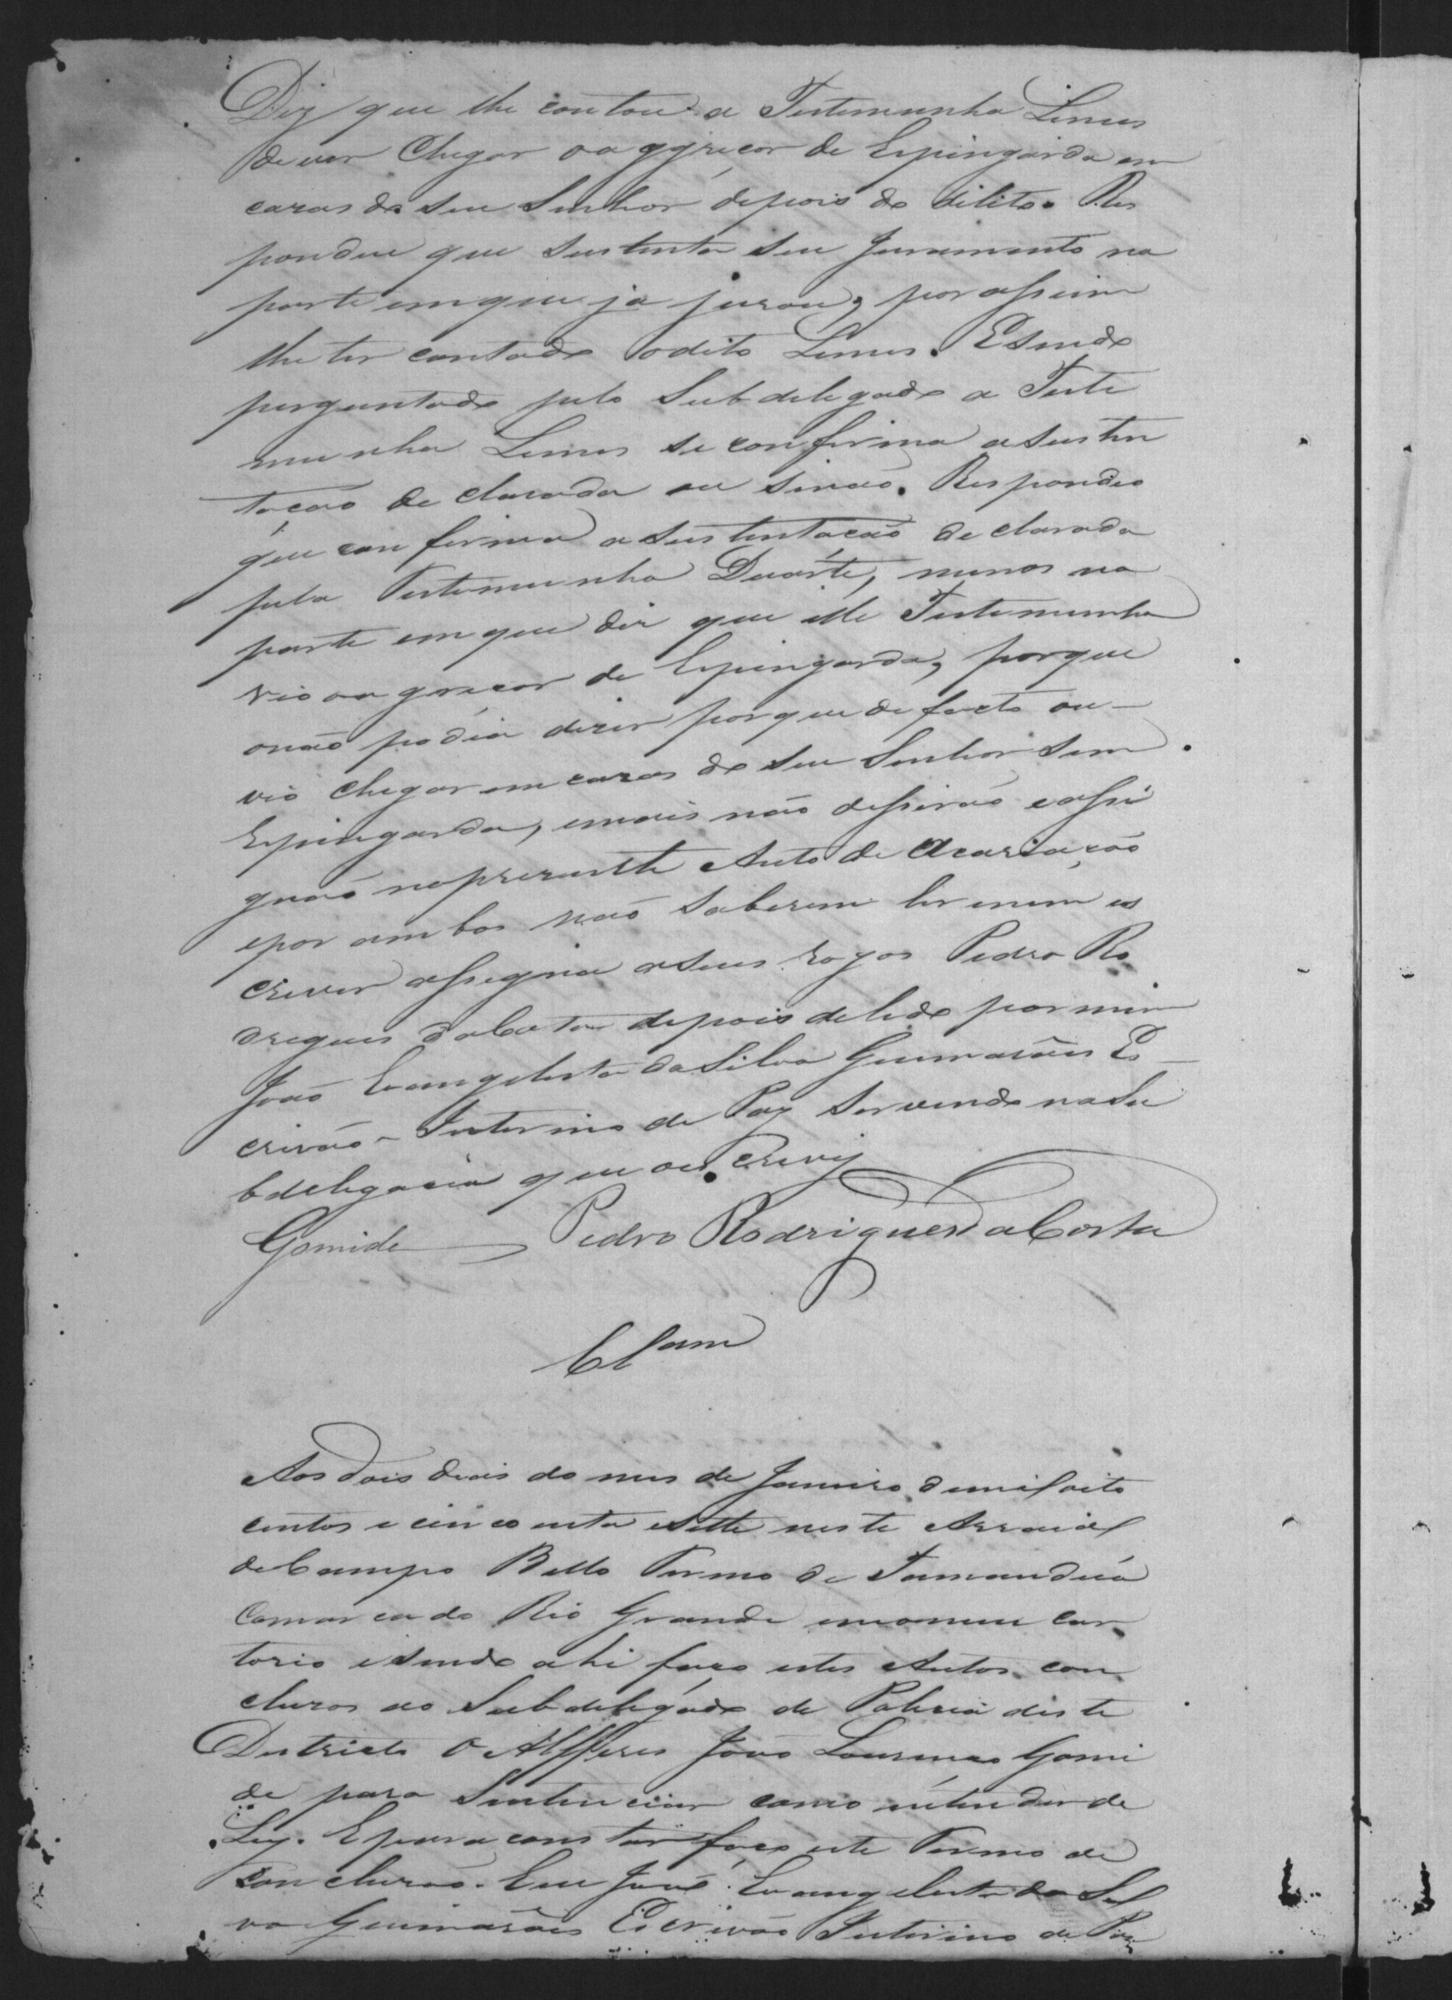 Diz que lhe contou a Testemunha Limus
de ver Chegar o aggreçor de Espingarda em
caras do seu Senhor depois do dilito. Res
pondeu que sustenta seu Juramento na
parte em que ja jurou, por assim
lhe ter contado o dito Limus. E sendo
perguntado pelo Subdelegado a Teste
munha Limus se confirma a susten
tação declarada ou sinão. Respondeo
que confirma a sustentação declarada
pela Testemunha Duarte, menos na
parte em que diz que elle Testemunha
vio o agreçor de Espingarda, porque
o não podia dizer porque de facto ou-
vio chegar em caras do seu Senhor sem
Espingarda, e mais não disserão e assi
gnaó no prezente Auto de Acariação
e por ambos naó saberem ler e nem es
crever assigna a seus rogos Pedro Ro
drigues da Costa depois de lido por mim
Joaó Evangelista da Silva Guimarães Es-
crivão Interino de Paz servindo na Su
bdelegacia que o escrevy
Gomide Pedro Rodrigues da Costa
Clsam
Aos dois dias do mes de Janeiro de mil oito
centos e cincoenta e sette neste Arraial
de Campo Bello Termo de Tamanduá
Comarca do Rio Grande em o meu car
torio e sendo ahi faço estes Autos con
cluzos ao Subdelegado de Policia deste
Destricto o Alfferes João Lourenço Gomi
de para Sentenciar como intender de
Ley. E para constar faço este Termo de
Concluzaó. Eu Joaó Evangelista da Sil
va Guimarães Escrivão Interino de Paz